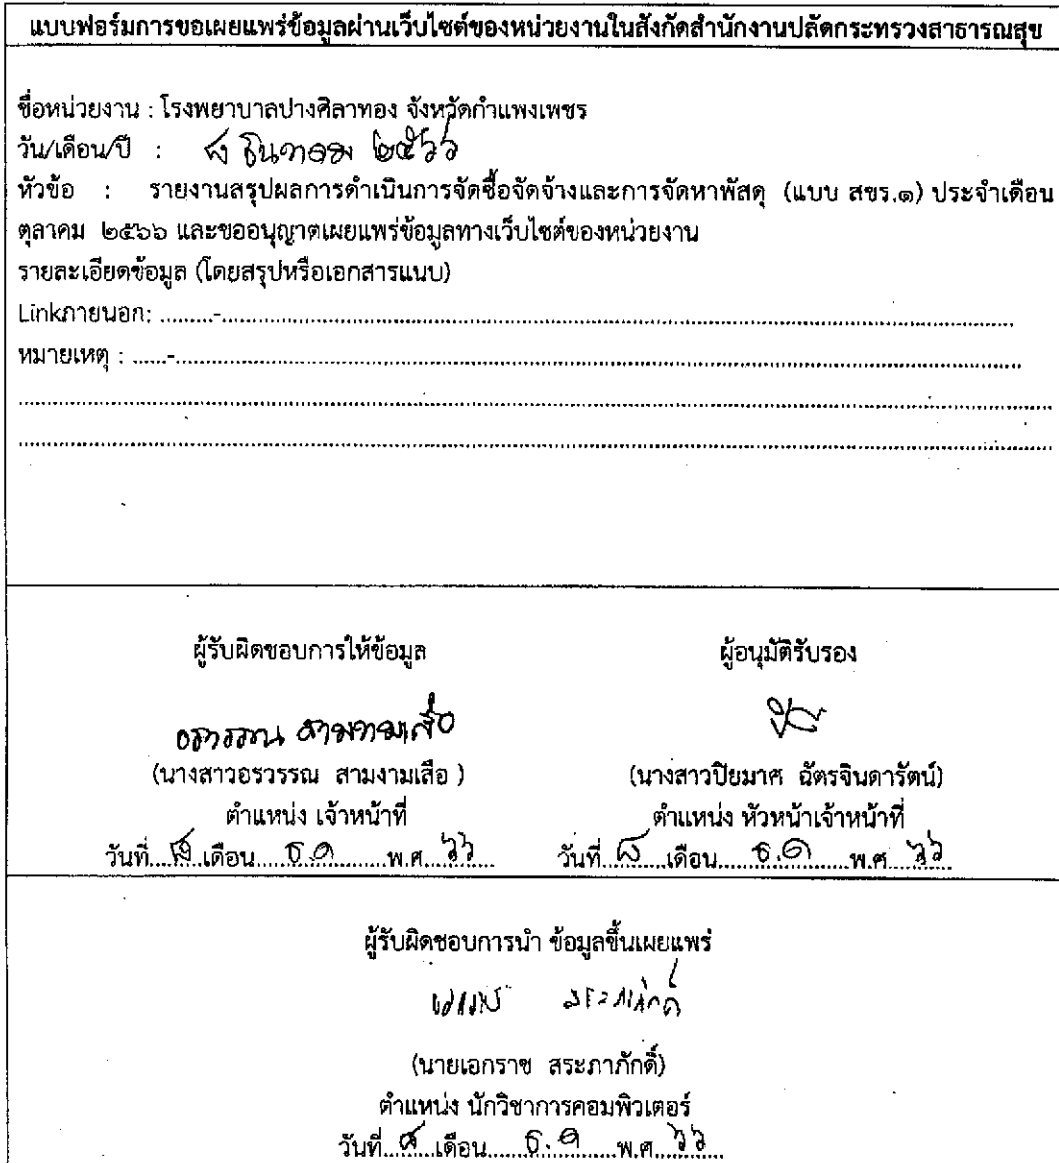 แบบฟอร์มการขอเผยแพร่ข้อมูลผ่านเว็บไซต์ของหน่วยงานในสังกัดสำนักงานปลัดกระทรวงสาธารณสุข
ชื่อหน่วยงาน : โรงพยาบาลปางศิลาทอง จังหวัดกำแพงเพชร
วัน/เดือน/ปี : ๘ ธันวาคม ๒๕๖๖
หัวข้อ : รายงานสรุปผลการดำเนินการจัดซื้อจัดจ้างและการจัดหาพัสดุ (แบบ สขร.๑) ประจำเดือน
ตุลาคม ๒๕๖๖ และขออนุญาตเผยแพร่ข้อมูลทางเว็บไซต์ของหน่วยงาน
รายละเอียดข้อมูล (โดยสรุปหรือเอกสารแนบ)
Linkภายนอก: .........-.........
หมายเหตุ : ......-.........
ผู้รับผิดชอบการให้ข้อมูล ผู้อนุมัติรับรอง
อรวรรณ สามงามเสือ
(นางสาวอรวรรณ สามงามเสือ ) (นางสาวปิยมาศ ฉัตรจินดารัตน์)
ตำแหน่ง เจ้าหน้าที่ ตำแหน่ง หัวหน้าเจ้าหน้าที่
วันที่...๘...เดือน.....ธ.ค.......พ.ศ...๖๖..... วันที่...๘...เดือน.....ธ.ค.......พ.ศ...๖๖.....
ผู้รับผิดชอบการนำ ข้อมูลขึ้นเผยแพร่
(นายเอกราช สระภาภักดิ์)
ตำแหน่ง นักวิชาการคอมพิวเตอร์
วันที่...๘...เดือน.....ธ.ค.......พ.ศ...๖๖.....